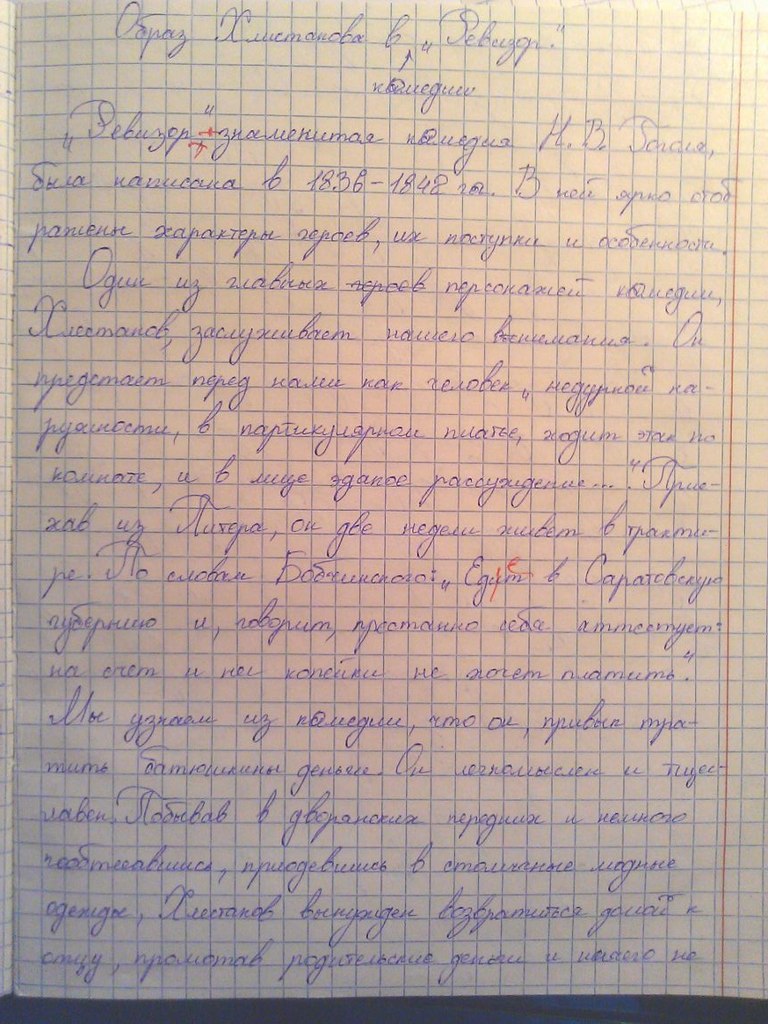 Образ Хлистакова в „Ревизор."
комедии
„Ревизор" - знаменитая комедия Н. В. Гоголя,
была написана в 1836-1848 гы. В ней ярко отоб
ражены характеры героев, их поступки и особенности.
Один из главных героев персонажей комедии,
Хлестаков, заслуживает нашего внимания. Он
предстает перед нами как человек „недурной на-
ружности, в партикулярном платье, ходит этак по
комнате, и в лице эдакое рассуждение...". Прие-
хав из Питера, он две недели живет в тракти-
ре. По словам Бобчинского: „Едет в Саратовскую
губернию и, говорит, престанно себя аттестует:
на счет и ни копейки не хочет платить."
Мы узнаем из комедии, что он, привык тра-
тить батюшкины деньги. Он легкомыслен и тщес-
лавен. Побывав в дворянских передних и немного
пообтесавшись, приодевшись в столичные модные
одежды, Хлестаков вынужден возвратиться домой к
отцу, промотав родительские деньги и ничего не